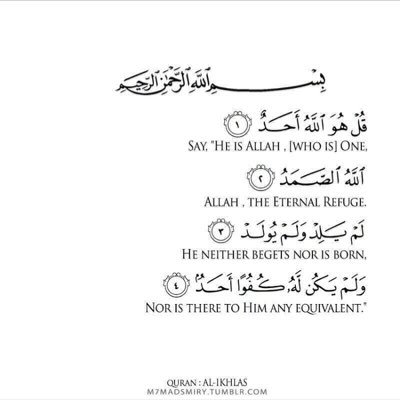 بِسْمِ اللَّهِ الرَّحْمَٰنِ الرَّحِيمِ
قُلْ هُوَ اللَّهُ أَحَدٌ ١
SAY, "HE IS ALLAH , [WHO IS] ONE,
اللَّهُ الصَّمَدُ ٢
ALLAH , THE ETERNAL REFUGE.
لَمْ يَلِدْ وَلَمْ يُولَدْ ٣
HE NEITHER BEGETS NOR IS BORN,
وَلَمْ يَكُن لَّهُ كُفُوًا أَحَدٌ ٤
NOR IS THERE TO HIM ANY EQUIVALENT."
QURAN : AL-IKHLAS
M7MADSMIRY.TUMBLR.COM